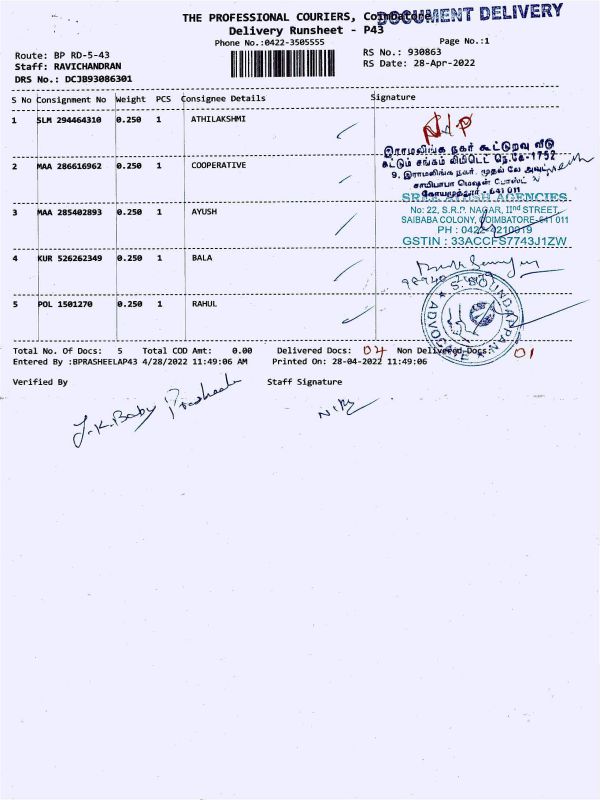 THE PROFESSIONAL COURIERS, Coimbatore
DOCUMENT DELIVERY
Delivery Runsheet - P43
Phone No.:0422-3505555
Page No.:1
Route: BP RD-5-43
RS No.: 930863
Staff: RAVICHANDRAN
RS Date: 28-Apr-2022
DRS No.: DCJB93086301
S No Consignment No Weight PCS Consignee Details Signature
1 SLM 294464310 0.250 1 ATHILAKSHMI
இராமலிங்க நகர் கூட்டுறவு வீடு
கட்டும் சங்கம் லிமிடெட்
2 MAA 286616962 0.250 1 COOPERATIVE
9, இராமலிங்க நகர், முதல்
கோயமுத்தூர் - 641 011
SREE AYUSH AGENCIES
3 MAA 285402893 0.250 1 AYUSH
No: 22, S.R.P. NAGAR, IInd STREET,
SAIBABA COLONY, COIMBATORE-641 011
PH : 0422-4210919
GSTIN : 33ACCFS7743J1ZW
4 KUR 526262349 0.250 1 BALA
S. SOUNDARAPANDIAN
ADVOCATE
5 POL 1501270 0.250 1 RAHUL
Total No. Of Docs: 5 Total COD Amt: 0.00 Delivered Docs: 04 Non Delivered Docs: 01
Entered By :BPRASHEELAP43 4/28/2022 11:49:06 AM Printed On: 28-04-2022 11:49:06
Verified By Staff Signature
J.K. Baby Prasheela